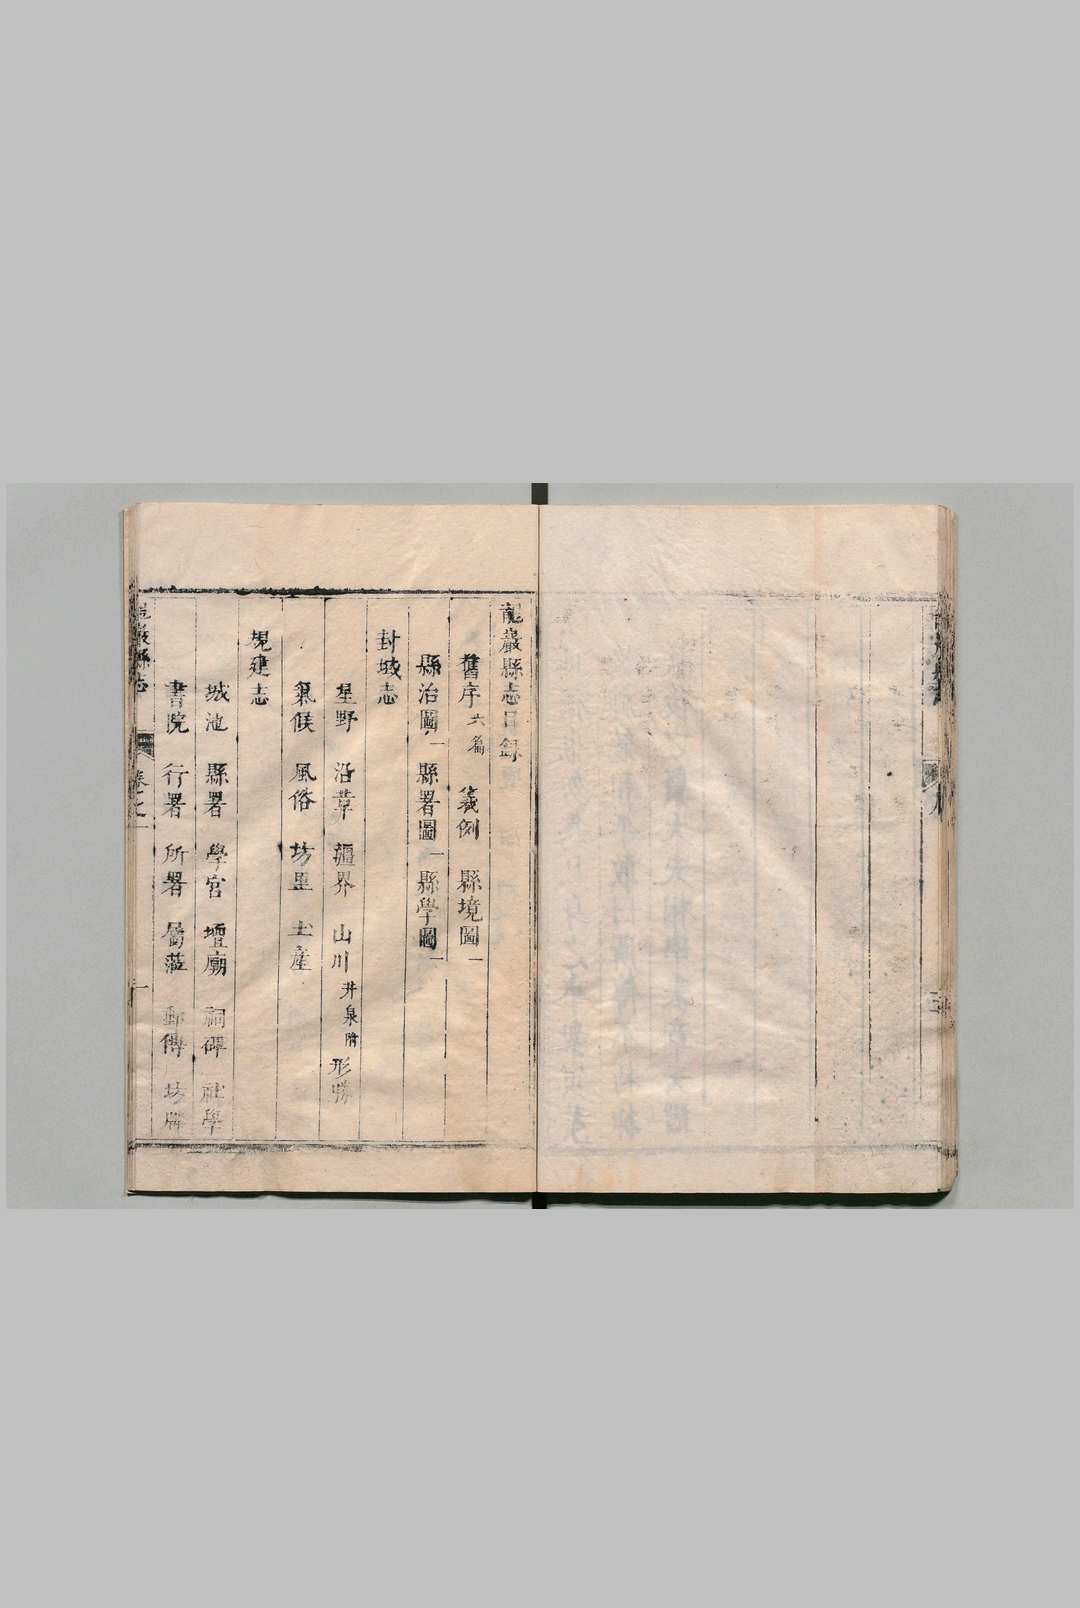 龍巖縣志目錄
舊序六篇 義例 縣境圖一
縣治圖一 縣署圖一 縣學圖一
封域志
星野 沿革 疆界 山川井泉附 形勝
氣候 風俗 坊里 土產
規建志
城池 縣署 學宮 壇廟 祠碑 社學
書院 行署 所署 屬蒞 郵傳 坊牌
龍巖縣志 卷之一 一